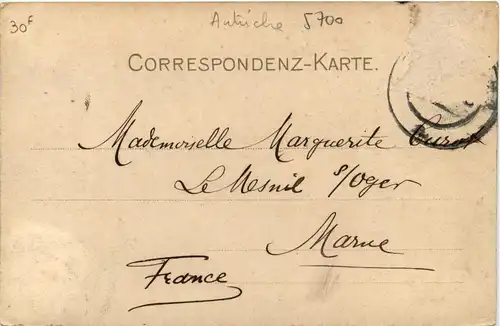 30F
Autriche 5700
CORRESPONDENZ-KARTE.
Mademoiselle Marguerite
Le Mesnil s/Oger
Marne
France